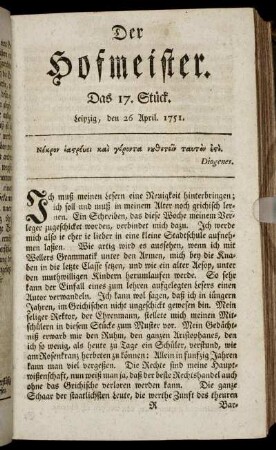 Der
Hofmeister.
Das 17. Stück.
Leipzig, den 26 April. 1751.
Νεκρον ιατρευει και γεροντα νουθετειν ταυτον εςι.
Diogenes.
Ich muß meinen Lesern eine Neuigkeit hinterbringen;
ich soll und muß in meinem Alter noch grichisch ler-
nen. Ein Schreiben, das diese Woche meinem Ver-
leger zugeschicket worden, verbindet mich dazu. Ich werde
mich also je eher je lieber in eine kleine Stadtschule aufneh-
men lassen. Wie artig wird es aussehen, wenn ich mit
Wellers Grammatik unter den Armen, mich bey die Kna-
ben in die letzte Classe setzen, und wie ein alter Aesop, unter
den muthwilligen Kindern herumlaufen werde. So sehr
kann der Einfall eines zum lehren aufgelegten Lesers einen
Autor verwandeln. Ich kann wol sagen, daß ich in jüngern
Jahren, im Grichischen nicht ungeschickt gewesen bin. Mein
seliger Rektor, der Ehrenmann, stellete mich meinen Mit-
schülern in diesem Stücke zum Muster vor. Mein Gedächt-
niß erwarb mir den Ruhm, den ganzen Aristophanes, den
ich so wenig, als heute zu Tage ein Schüler, verstund, wie
am Rosenkranz herbeten zu können: Allein in funfzig Jahren
kann man viel vergessen. Die Rechte sind meine Haupt-
wissenschaft, nun weiß man ja, daß der beste Rechtshandel auch
ohne das Grichische verloren werden kann. Die ganze
Schaar der staatlichsten Leute, die werthe Zunft des theuren
R Bar-